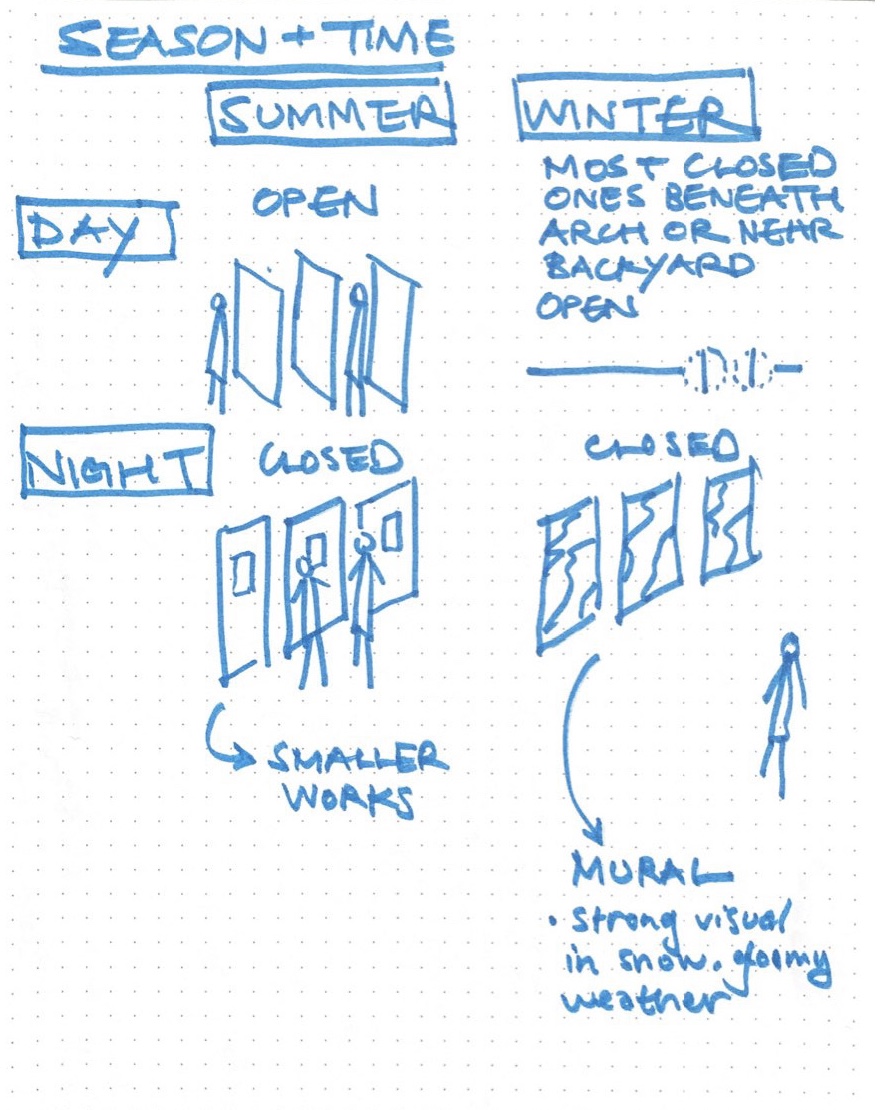 SEASON + TIME
SUMMER
WINTER
DAY
OPEN
MOST CLOSED
ONES BENEATH
ARCH OR NEAR
BACKYARD
OPEN
NIGHT
CLOSED
CLOSED
SMALLER
WORKS
MURAL
• strong visual
in snow. gloomy
weather